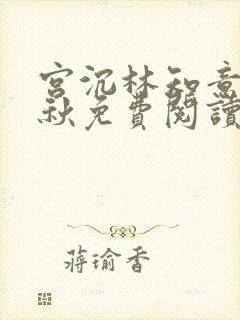 宮沉林知意
秋免費閱讀
蔣瑜香